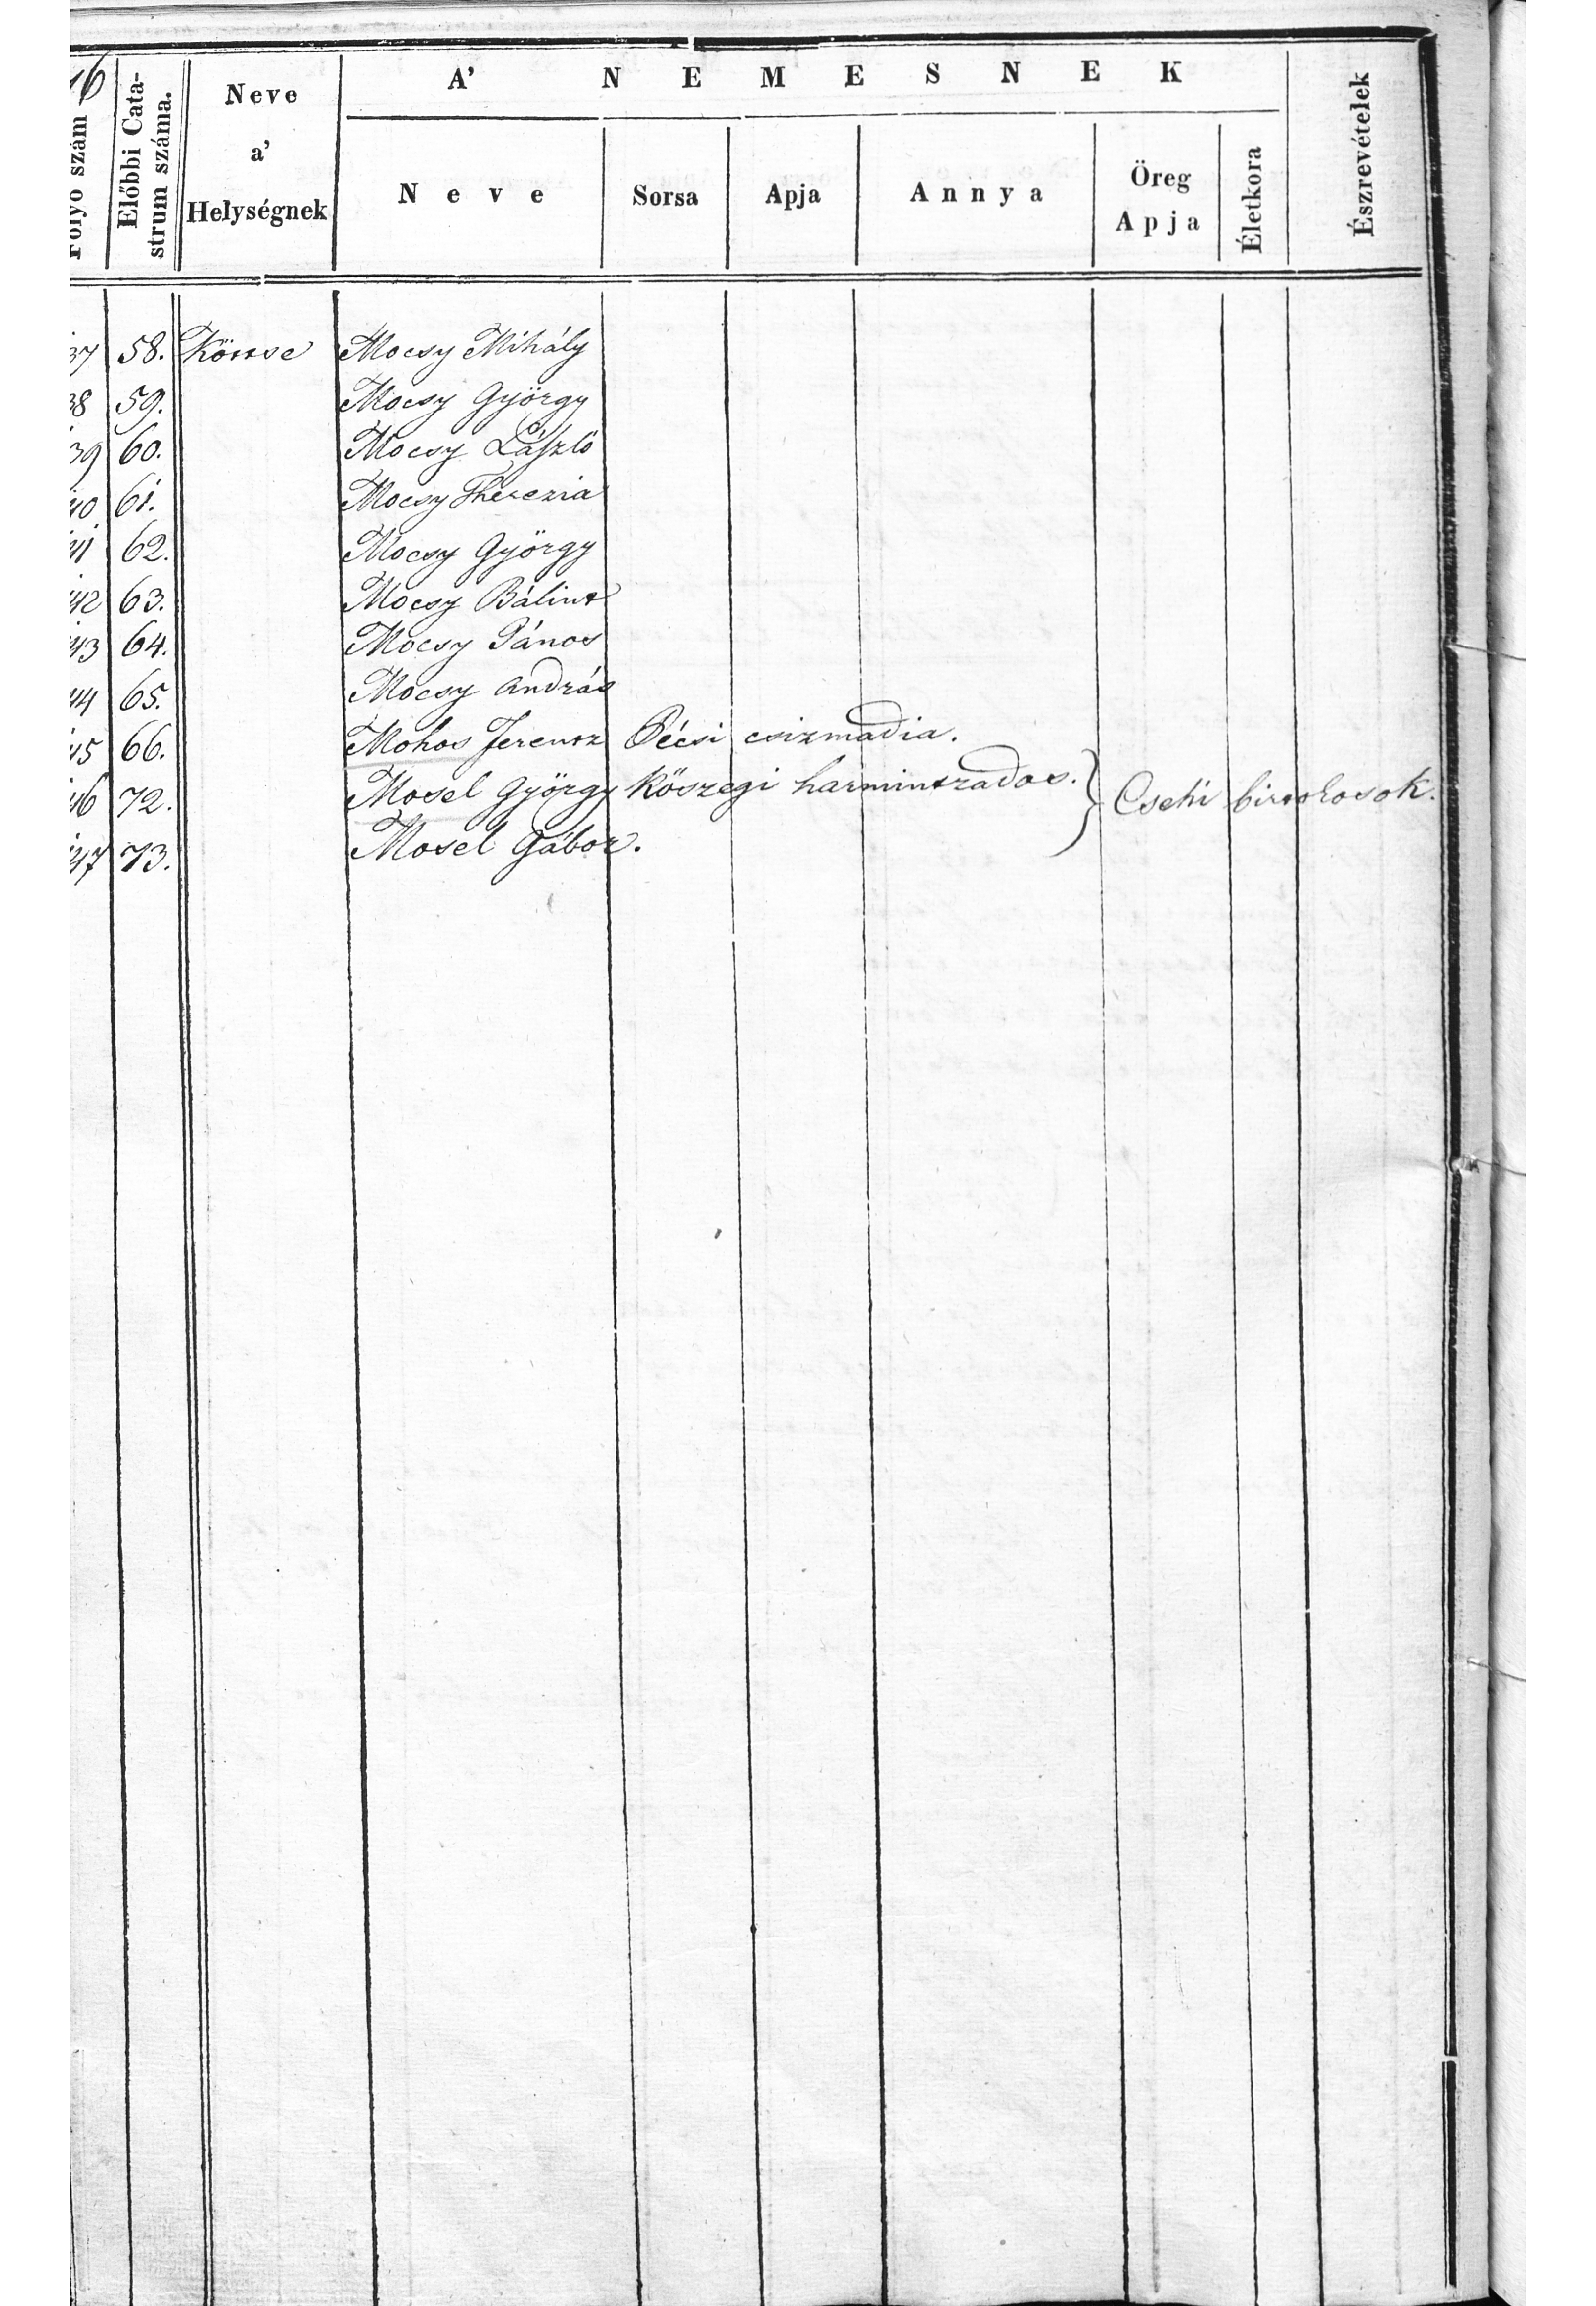 16
Folyo szám
Előbbi Cata-
strum száma.
Neve
a'
Helységnek
A' NEMESNEK
Neve
Sorsa
Apja
Annya
Öreg
Apja
Életkora
Észrevételek
37 58. Kötse Mocsy Mihály
38 59. Mocsy György
39 60. Mocsy László
40 61. Mocsy Therezia
41 62. Mocsy György
42 63. Mocsy Bálint
43 64. Mocsy János
44 65. Mocsy András
45 66. Mohos Ferentz Pécsi csizmadia.
46 72. Mosel György Kőszegi harmintzados. } Csehi birtokosok.
47 73. Mosel Gábor.